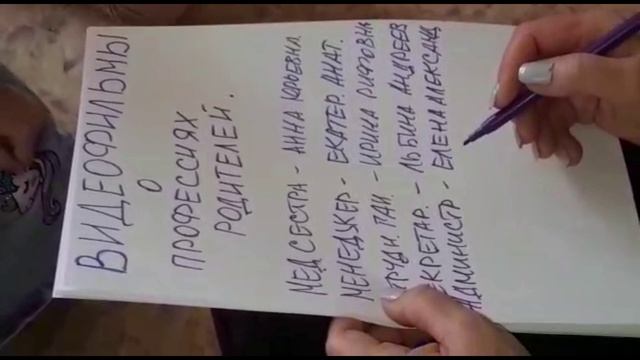 ВИДЕОФИЛЬМЫ
О
ПРОФЕССИЯХ
РОДИТЕЛЕЙ.
МЕД СЕСТРА - АННА ЮРЬЕВНА
МЕНЕДЖЕР - ЕКАТЕР. АНАТ.
ТРУДН. - ИРИНА РИФОВНА
СЕКРЕТАР. - АНДРЕЕВ
АДМИНИСТР - ЕЛЕНА АЛЕКСАНД